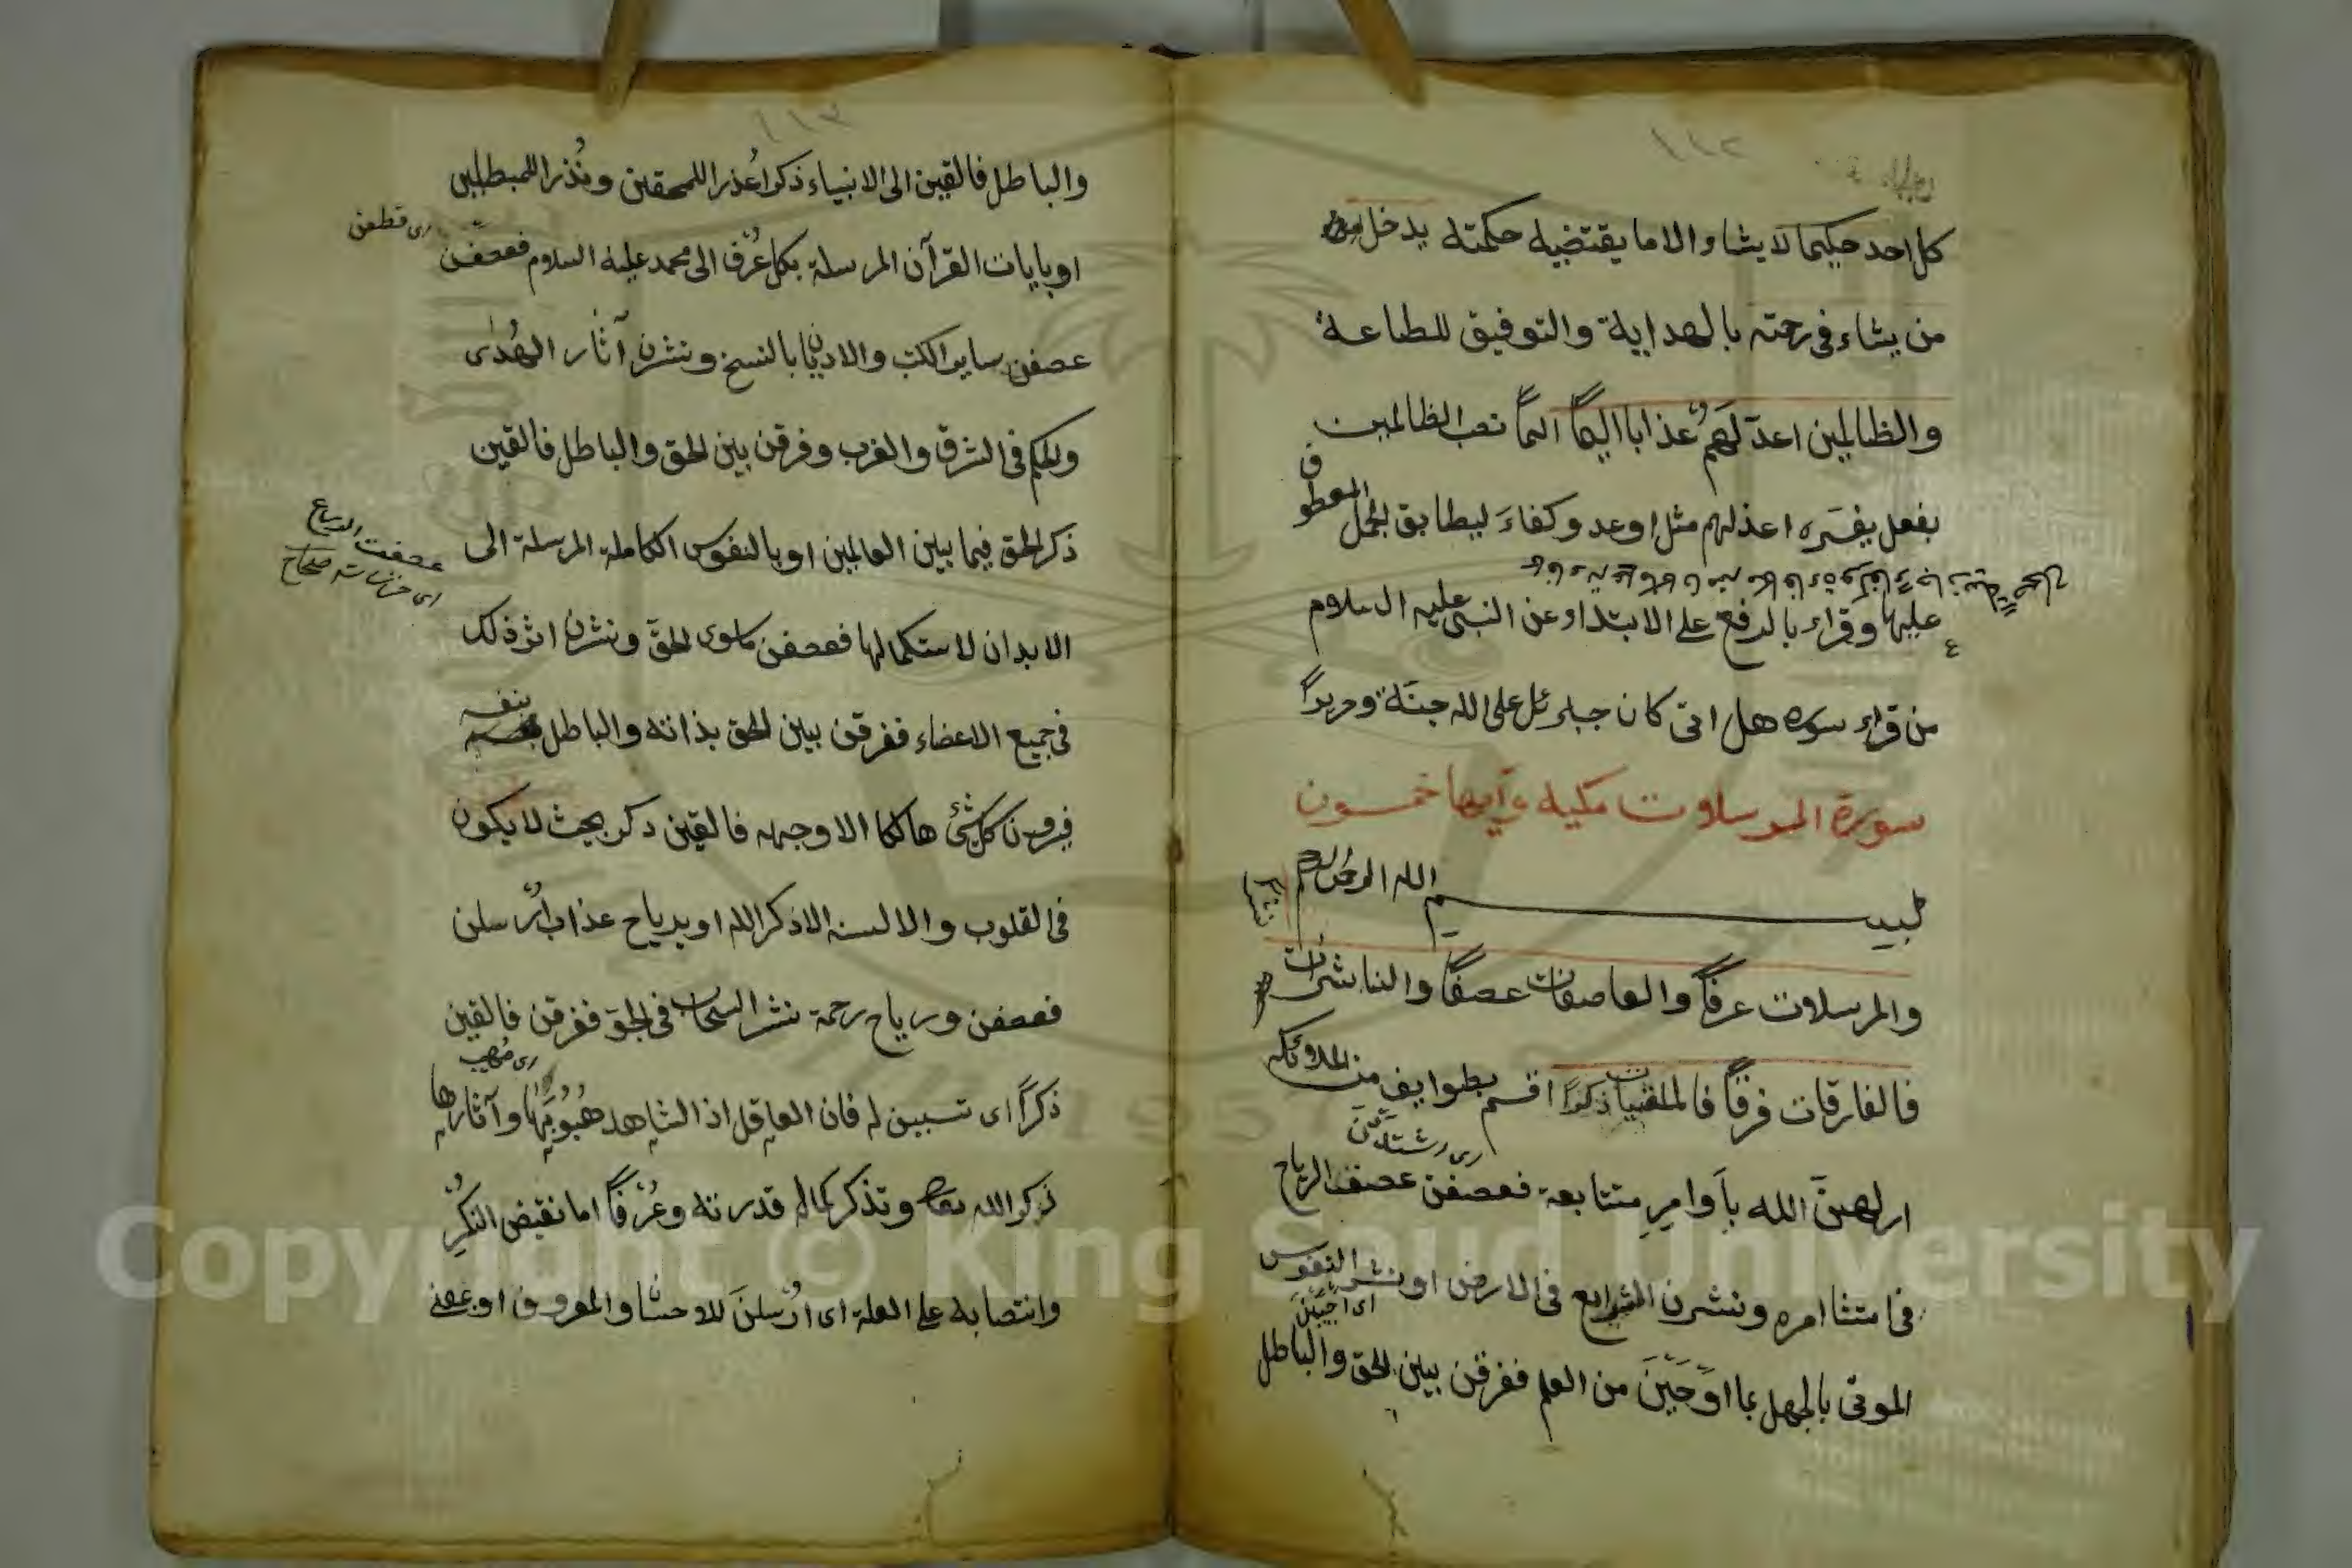 ١١٢
كل احد حكيما لا يشاء الا ما يقتضيه حكمته يدخل
من يشاء فى رحمته بالهداية والتوفيق للطاعة
والظالمين اعدّ لهم عذابا اليمًا نصب الظالمين
بفعل يفسّره اعدّ لهم مثل اوعد وكفاء ليطابق الجمل المعطوف
عليها وقرء بالرفع على الابتداء وعن النبى عليه السلام
من قراء سورة هل اتى كان جزاؤه على الله جنّة وحريرًا
سورة المرسلات مكية وآيها خمسون
بسم الله الرحمن الرحيم
والمرسلات عرفًا والعاصفات عصفًا والناشرات
نشرا
فالفارقات فرقًا فالملقيات ذكرًا اقسم بطوايف من الملائكه
ارسلهنّ الله بأوامر متتابعة فعصفن عصف الرياح
فى امتثا امره ونشرن الشرايع فى الارض او نشر النفوس
الموتى بالجهل بما اوحَيْنَ من العلم ففرقن بين الحق والباطل
١١٣
والباطل فالقين الى الانبياء ذكرا عُذرا للمحقين ونُذرا للمبطلين
اى قطعن
او بايات القرآن المرسلة بكل عُرْف الى محمد عليه السلام فعصفن
عصفن ساير الكتب والاديان بالنسخ ونشرن آثار الهُدى
والحكم فى الشرق والغرب وفرقن بين الحق والباطل فالقين
ذكر الحق فيما بين العالمين او بالنفوس الكاملة المرسلة الى
عصفت الريح
الابدان لاستكمالها فعصفن ماسوى الحقّ ونشرن اثر ذلك
فى جميع الاعضاء ففرقن بين الحق بذاته والباطل بنفسه
فيرون كل شئ هالكا الا وجهه فالقين ذكر بحيث لا يكون
فى القلوب والالسنه الا ذكر الله او برياح عذاب اُرْسلن
فعصفن ورياح رحمة نشرن السحاب فى الجوّ ففرقن فالقين
ذكرًا اى تسببن له فان العاقل اذا شاهد هُبُوبَها وآثارها
ذكر الله تعالى وتذكر كمال قدرته وعُرْفًا اما نقيض النُكْر
وانتصابه على العلة اى اُرْسلنَ للاحسان والمعروف او بمعنى